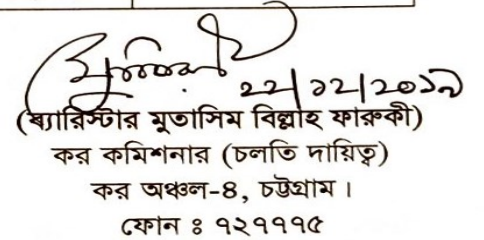 ২২/১২/২০১৯
(ব্যারিস্টার মুতাসিম বিল্লাহ ফারুকী)
কর কমিশনার (চলতি দায়িত্ব)
কর অঞ্চল-৪, চট্টগ্রাম।
ফোন ঃ ৭২৭৭৭৫